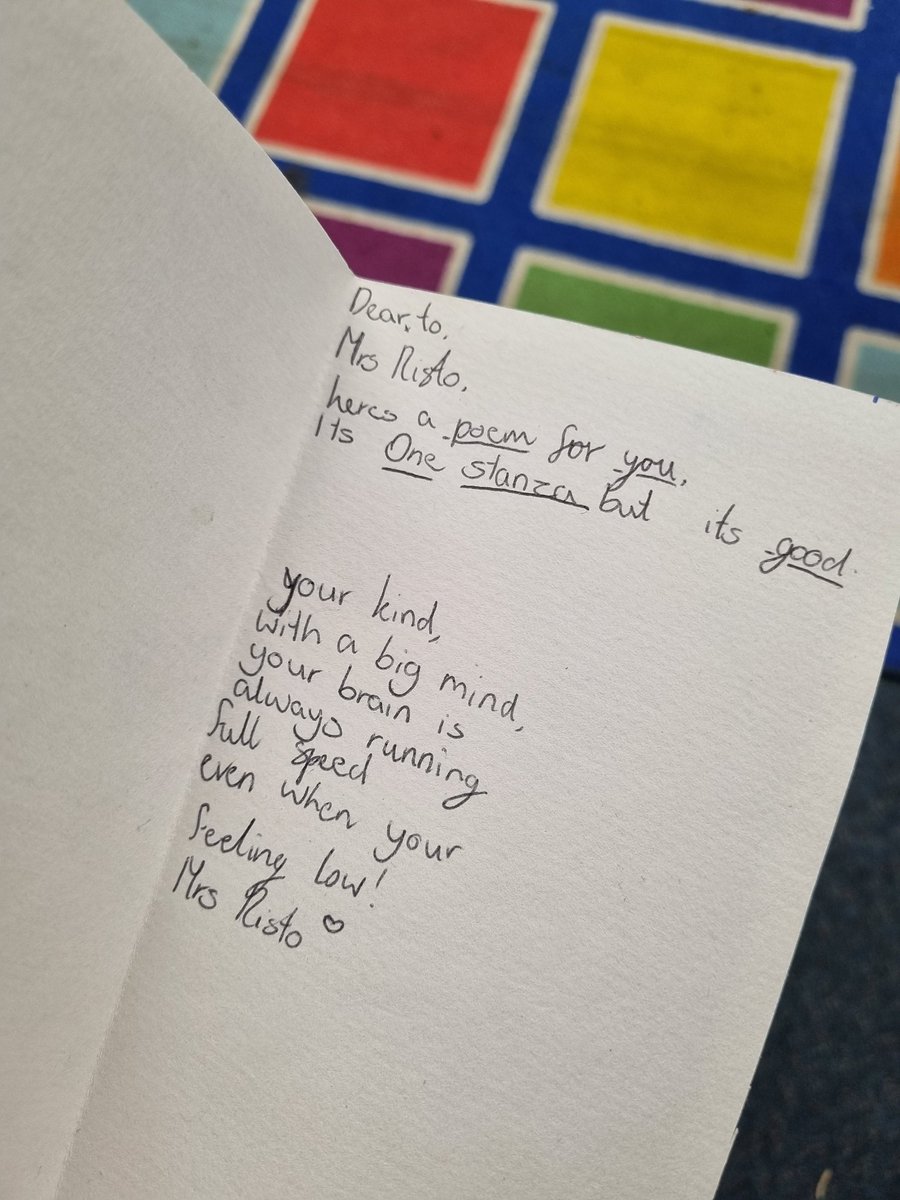 Dear, to,
Mrs Risto,
heres a poem for you,
Its One stanza but its good.
your kind,
with a big mind,
your brain is
always running
full speed
even when your
feeling low!
Mrs Risto ♡